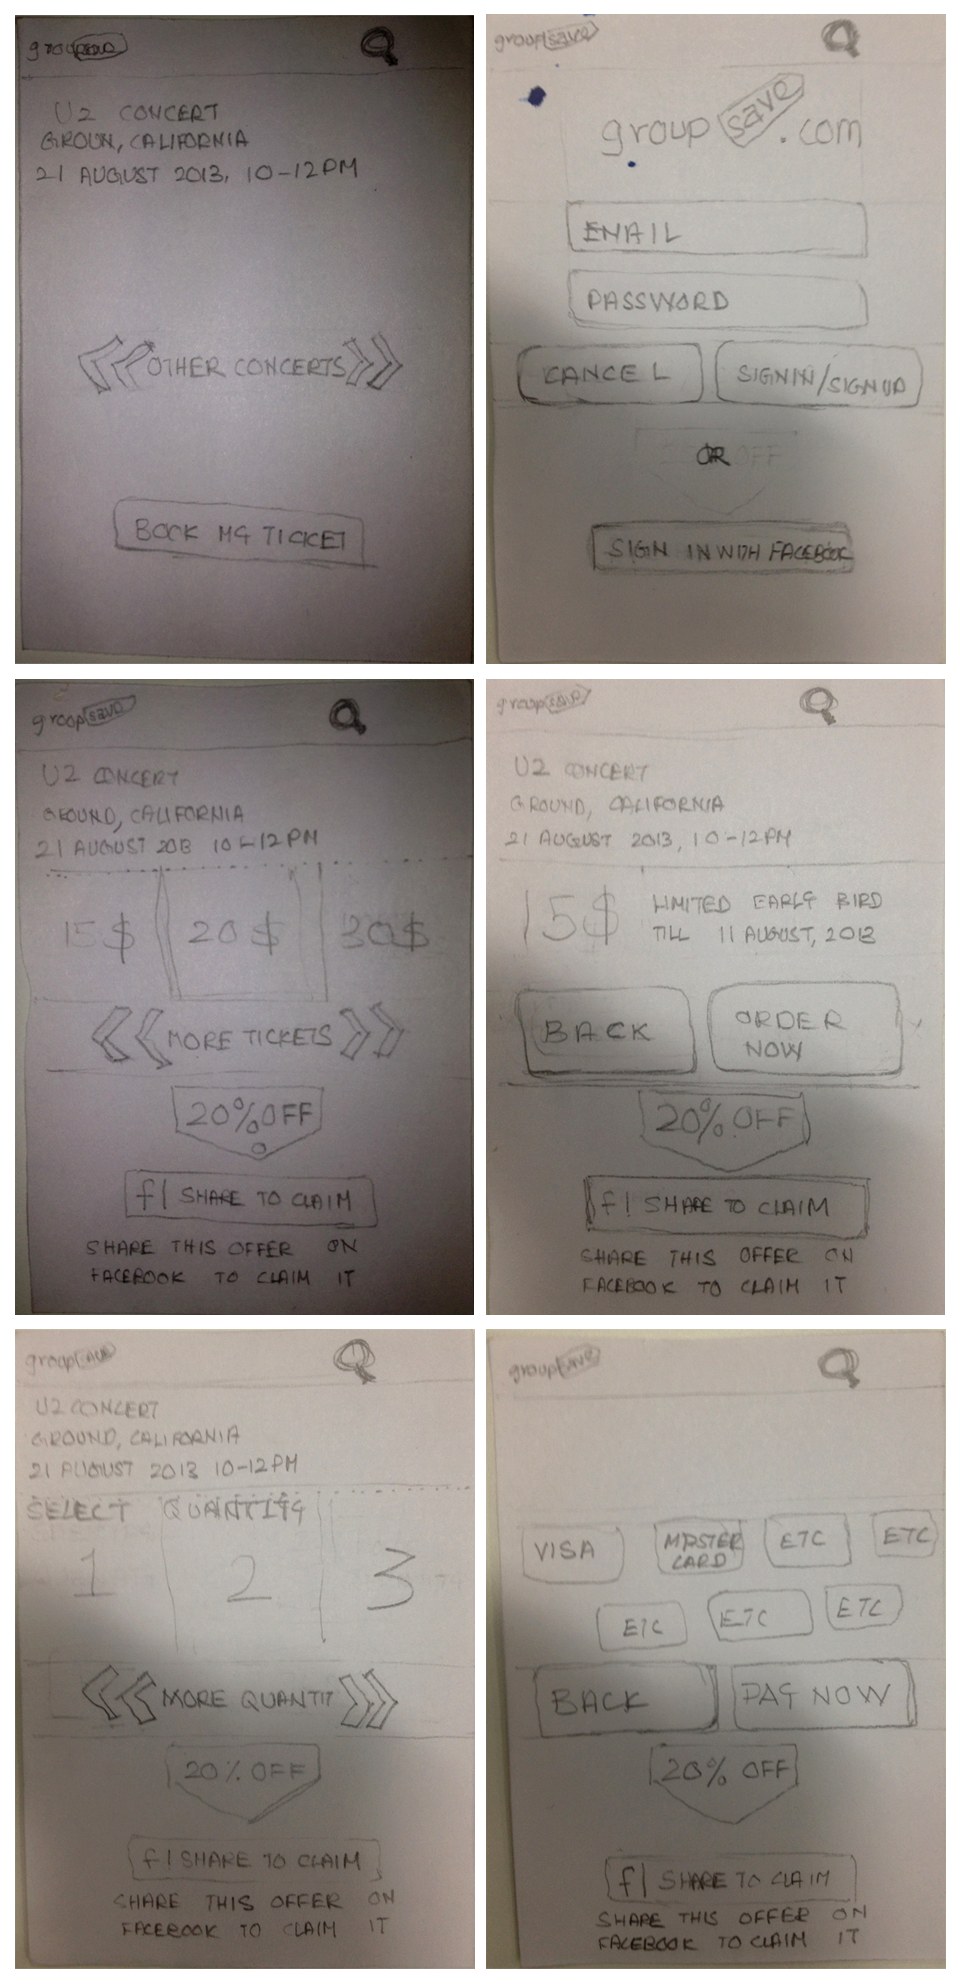 groupsave
U2 CONCERT
GROUN, CALIFORNIA
21 AUGUST 2013, 10-12PM
OTHER CONCERTS
BOOK MY TICKET
groupsave
groupsave.com
EMAIL
PASSWORD
CANCEL
SIGNIN/SIGNUP
OR
OFF
SIGN IN WITH FACEBOOK
groupsave
U2 CONCERT
GROUND, CALIFORNIA
21 AUGUST 2013 10-12PM
15$ 20$ 30$
MORE TICKETS
20% OFF
f| SHARE TO CLAIM
SHARE THIS OFFER ON
FACEBOOK TO CLAIM IT
groupsave
U2 CONCERT
GROUND, CALIFORNIA
21 AUGUST 2013, 10-12PM
15$ LIMITED EARLY BIRD
TILL 11 AUGUST, 2013
BACK
ORDER
NOW
20% OFF
f| SHARE TO CLAIM
SHARE THIS OFFER ON
FACEBOOK TO CLAIM IT
groupsave
U2 CONCERT
GROUND, CALIFORNIA
21 AUGUST 2013 10-12PM
SELECT QUANTITY
1 2 3
MORE QUANTIT
20% OFF
f| SHARE TO CLAIM
SHARE THIS OFFER ON
FACEBOOK TO CLAIM IT
groupsave
VISA
MASTER
CARD
ETC
ETC
ETC
ETC
ETC
BACK
PAY NOW
20% OFF
f| SHARE TO CLAIM
SHARE THIS OFFER ON
FACEBOOK TO CLAIM IT